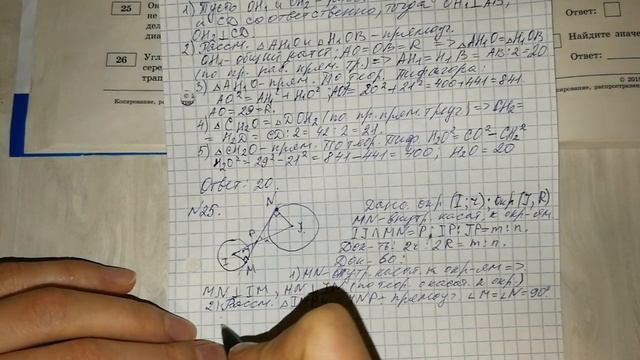 25
26
Угл
Ответ:
Найдите значен
Ответ:
Копирование, р
Копирование, распро
1) Пусть OH₁ и OH₂ -
и CD соответственно, тогда OH₁⊥AB,
OH₂⊥CD.
2) Рассм. △AH₁O и △H₁OB – прямоуг.
OH₁ – общий катет; AO = OB = R => △AH₁O = △H₁OB
=> AH₁ = H₁B = AB:2 = 20
3) △AH₁O – прям. По теор. Пифагора:
AO² = AH₁² + H₁O², AO² = 20² + 21² = 400 + 441 = 841
AO = 29 = R.
4) △CH₂O = △DOH₂ (по пр. прям. треуг) => CH₂ =
= H₂D = CD:2 = 42:2 = 21.
5) △CH₂O – прям. По теор. Пиф. H₂O² = CO² – CH₂²
H₂O² = 29² – 21² = 841 – 441 = 400, H₂O = 20
Ответ: 20.
№25.
N
P
J
I
M
Дано: окр (I; r); окр (J, R)
MN – внутр. касат. к окр-ям
IJ ∩ MN = P; IP:JP = m:n.
Док-ть: 2r : 2R = m:n.
Док-во:
1) MN – внутр. касат. к окр-ям =>
MN ⊥ IM, MN ⊥ JN (по теор. о касат. к окр.)
2) Рассм. △IMP и △JNP – прямоуг. ∠M = ∠N = 90°